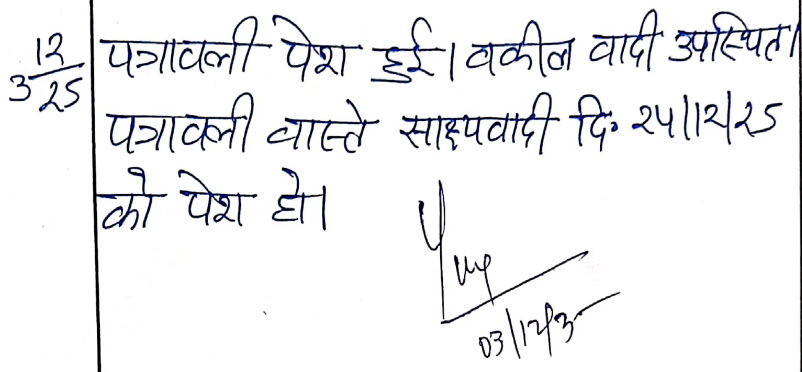 3 12/25 पत्रावली पेश हुई। वकील वादी उपस्थित।
पत्रावली वास्ते साक्ष्यवादी दि० २५/१२/२५
को पेश हो।